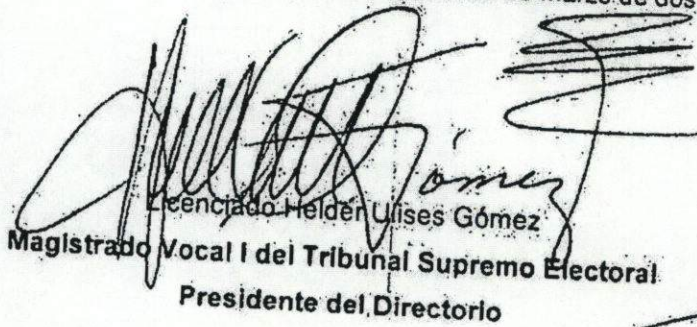 Marzo de dos
Gómez
Licenciado Helder Ulises Gómez
Magistrado Vocal I del Tribunal Supremo Electoral
Presidente del Directorio